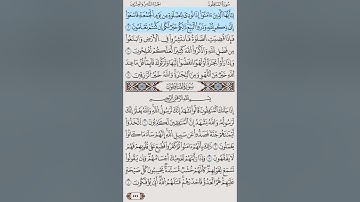 يَٰٓأَيُّهَا ٱلَّذِينَ ءَامَنُوٓا۟ إِذَا نُودِىَ لِلصَّلَوٰةِ مِن يَوْمِ ٱلْجُمُعَةِ فَٱسْعَوْا۟
إِلَىٰ ذِكْرِ ٱللَّهِ وَذَرُوا۟ ٱلْبَيْعَ ذَٰلِكُمْ خَيْرٌ لَّكُمْ إِن كُنتُمْ تَعْلَمُونَ ٩
فَإِذَا قُضِيَتِ ٱلصَّلَوٰةُ فَٱنتَشِرُوا۟ فِى ٱلْأَرْضِ وَٱبْتَغُوا۟
مِن فَضْلِ ٱللَّهِ وَٱذْكُرُوا۟ ٱللَّهَ كَثِيرًا لَّعَلَّكُمْ تُفْلِحُونَ ١٠
وَإِذَا رَأَوْا۟ تِجَٰرَةً أَوْ لَهْوًا ٱنفَضُّوٓا۟ إِلَيْهَا وَتَرَكُوكَ قَآئِمًا قُلْ مَا عِندَ
ٱللَّهِ خَيْرٌ مِّنَ ٱللَّهْوِ وَمِنَ ٱلتِّجَٰرَةِ وَٱللَّهُ خَيْرُ ٱلرَّٰزِقِينَ ١١
سُورَةُ ٱلْمُنَافِقُونَ
بِسْمِ ٱللَّهِ ٱلرَّحْمَٰنِ ٱلرَّحِيمِ
إِذَا جَآءَكَ ٱلْمُنَٰفِقُونَ قَالُوا۟ نَشْهَدُ إِنَّكَ لَرَسُولُ ٱللَّهِ وَٱللَّهُ يَعْلَمُ
إِنَّكَ لَرَسُولُهُۥ وَٱللَّهُ يَشْهَدُ إِنَّ ٱلْمُنَٰفِقِينَ لَكَٰذِبُونَ ١
ٱتَّخَذُوٓا۟ أَيْمَٰنَهُمْ جُنَّةً فَصَدُّوا۟ عَن سَبِيلِ ٱللَّهِ إِنَّهُمْ سَآءَ مَا كَانُوا۟
يَعْمَلُونَ ٢ ذَٰلِكَ بِأَنَّهُمْ ءَامَنُوا۟ ثُمَّ كَفَرُوا۟ فَطُبِعَ عَلَىٰ قُلُوبِهِمْ فَهُمْ
لَا يَفْقَهُونَ ٣ وَإِذَا رَأَيْتَهُمْ تُعْجِبُكَ أَجْسَامُهُمْ وَإِن يَقُولُوا۟
تَسْمَعْ لِقَوْلِهِمْ كَأَنَّهُمْ خُشُبٌ مُّسَنَّدَةٌ يَحْسَبُونَ كُلَّ صَيْحَةٍ
عَلَيْهِمْ هُمُ ٱلْعَدُوُّ فَٱحْذَرْهُمْ قَٰتَلَهُمُ ٱللَّهُ أَنَّىٰ يُؤْفَكُونَ ٤